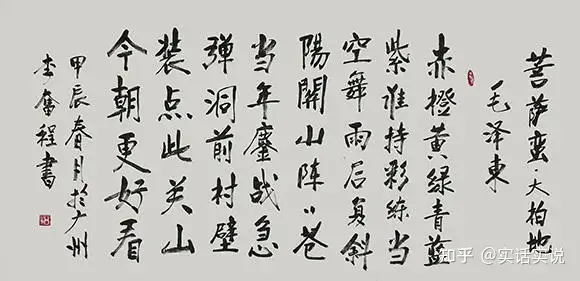 菩萨蛮·大柏地
毛泽東
赤橙黄绿青蓝
紫谁持彩练当
空舞雨后复斜
陽關山阵〻苍
当年鏖战急
彈洞前村壁
装点此关山
今朝更好看
甲辰春月於广州
李奮程書
知乎 @实话实说